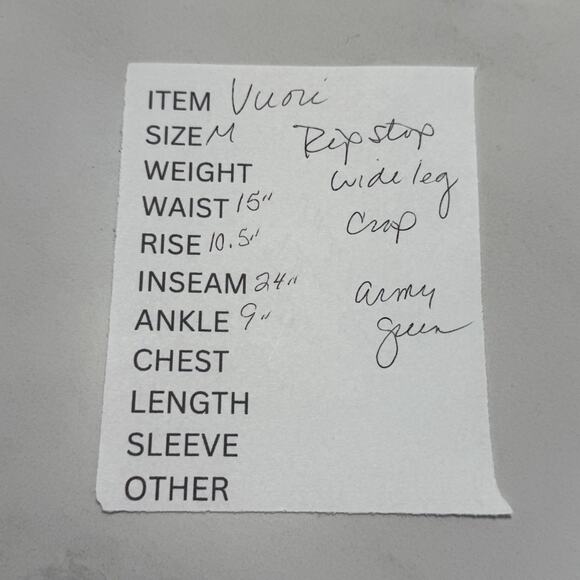 ITEM Vuori
SIZE M Ripstop
WEIGHT wide leg
WAIST 15"
RISE 10.5" Crop
INSEAM 24"
ANKLE 9" army
green
CHEST
LENGTH
SLEEVE
OTHER